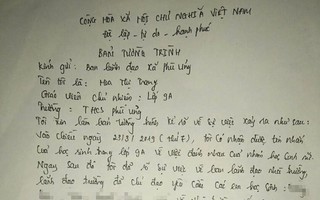 CỘNG HÒA XÃ HỘI CHỦ NGHĨA VIỆT NAM
Độc lập - Tự do - hạnh phúc
BẢN TƯỜNG TRÌNH
Kính gửi: Ban lãnh đạo xã Phù Ủng
Tên tôi là: Hoa Thị Trang
Giáo Viên Chủ nhiệm: Lớp 9A
Trường: THCS Phù Ủng
Tôi xin làm bản tường trình kể rõ về sự việc xảy ra như sau:
Vào chiều ngày 23/3/2019 (thứ 7), tôi có nhận được tin nhắn
của học sinh trong lớp 9A về việc đánh nhau của nhóm học sinh nữ.
Ngay sau đó tôi đã sự việc về ban lãnh đạo nhà trường,
lãnh đạo trường đã chỉ đạo yêu cầu các em học sinh: